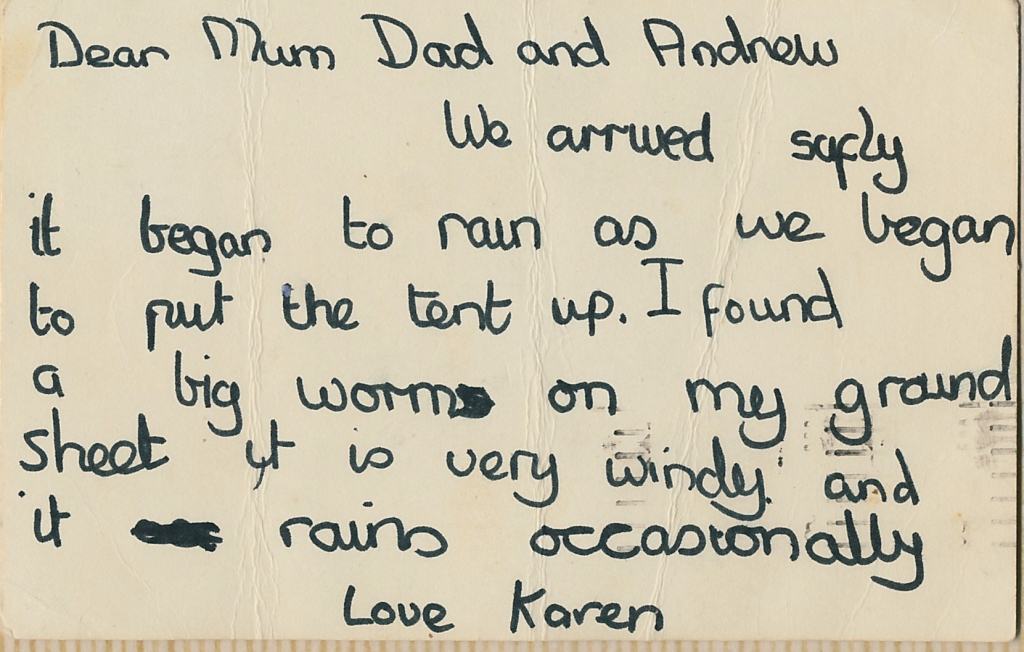 Dear Mum Dad and Andrew
We arrived safly
it began to rain as we began
to put the tent up. I found
a big worm on my ground
sheet it is very windy. and
it rains occasionally
Love Karen